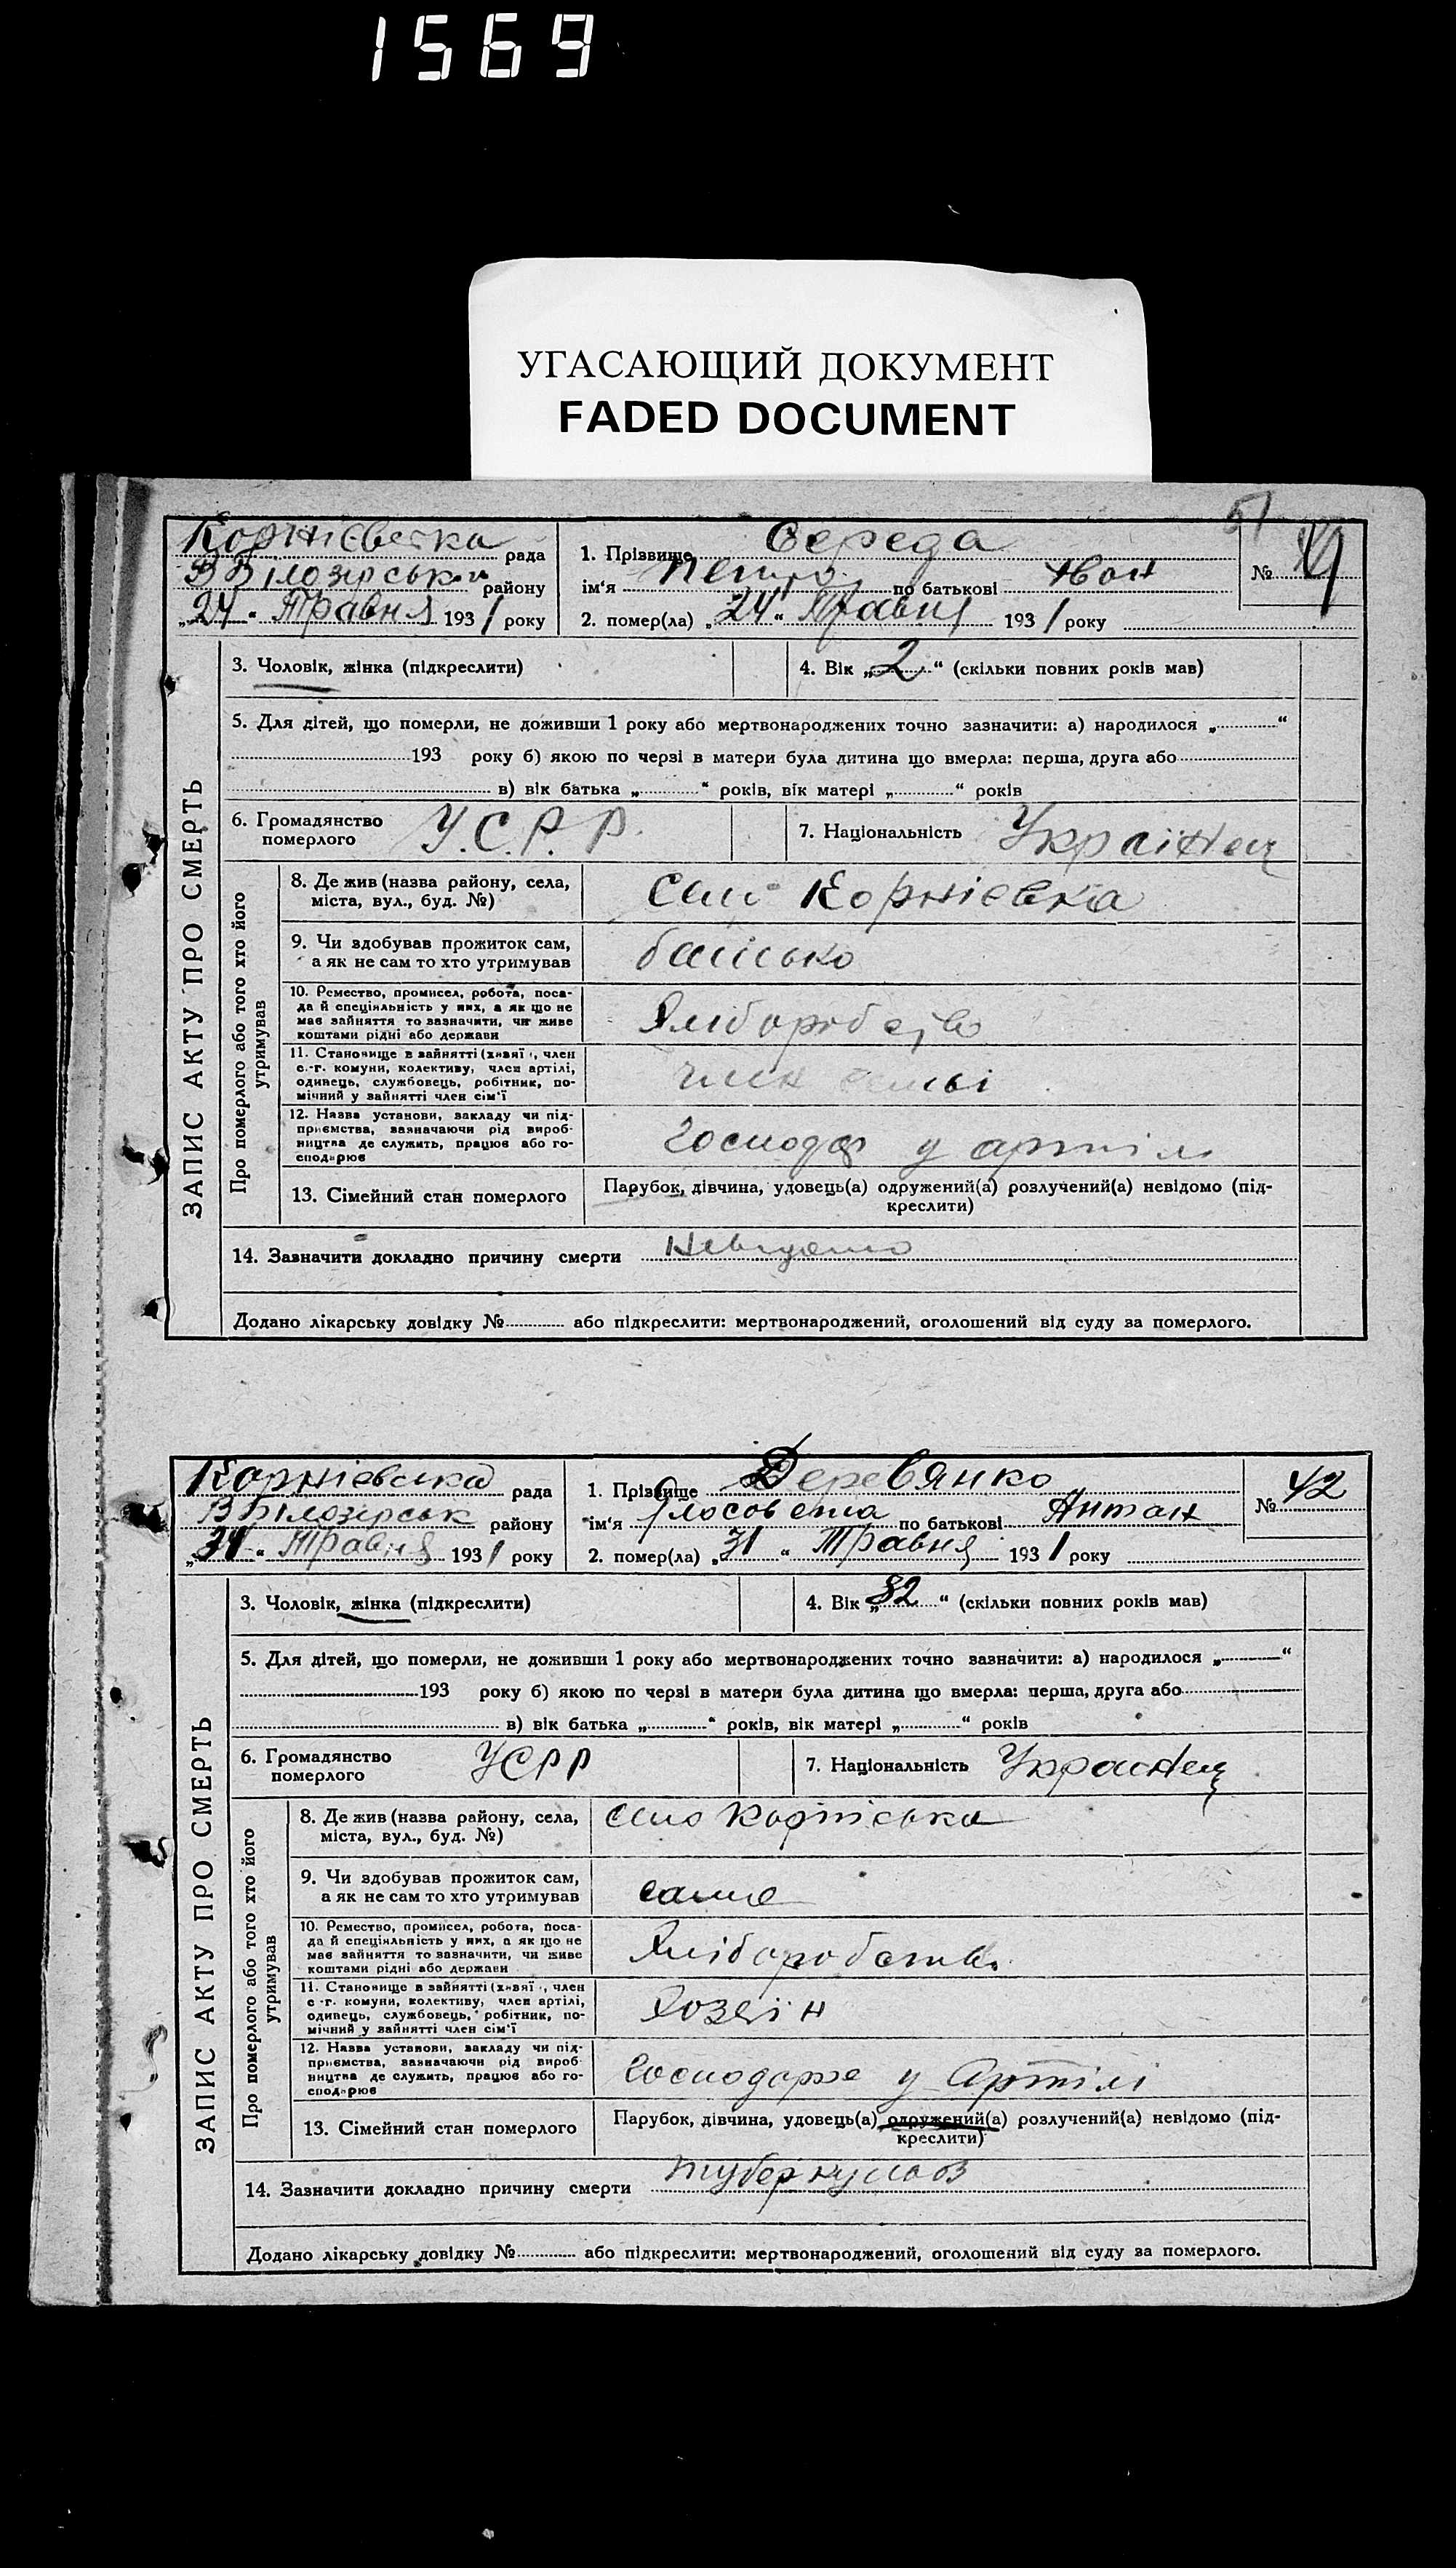 1569
УГАСАЮЩИЙ ДОКУМЕНТ
FADED DOCUMENT
51
Корнієвська рада
В Білозірськ району
„24“ Травня 1931 року
1. Прізвище Середа
ім'я Петро по батькові Іван
2. помер(ла) „24“ Травня 1931 року
№
ЗАПИС АКТУ ПРО СМЕРТЬ
3. Чоловік, жінка (підкреслити)
4. Вік „2“ (скільки повних років мав)
5. Для дітей, що померли, не доживши 1 року або мертвонароджених точно зазначити: а) народилося „ “
193 року б) якою по черзі в матери була дитина що вмерла: перша, друга або
в) вік батька „ “ років, вік матері „ “ років
6. Громадянство
померлого
У.С.Р.Р.
7. Національність Украінец
Про померлого або того хто його
утримував
8. Де жив (назва району, села,
міста, вул., буд. №)
Село Корнієвка
9. Чи здобував прожиток сам,
а як не сам то хто утримував
батько
10. Ремество, промисел, робота, поса-
да й спеціяльність у них, а як що не
має зайняття то зазначити, чи живе
коштами рідні або держави
Хліборобство
11. Становище в зайнятті (хазяї, член
с.-г. комуни, колективу, член артілі,
одинець, службовець, робітник, по-
мічний у зайнятті член сім'ї
член семьі
12. Назва установи, закладу чи під-
приємства, зазначаючи рід вироб-
ництва де служить, працює або го-
сподарює
господар у артілі
13. Сімейний стан померлого
Парубок, дівчина, удовець(а) одружений(а) розлучений(а) невідомо (під-
креслити)
14. Зазначити докладно причину смерти Невідомо
Додано лікарську довідку № або підкреслити: мертвонароджений, оголошений від суду за померлого.
Корнієвська рада
В Білозірськ району
„31“ Травня 1931 року
1. Прізвище Деревянко
ім'я по батькові Антон
2. помер(ла) „31“ Травня 1931 року
№ 42
ЗАПИС АКТУ ПРО СМЕРТЬ
3. Чоловік, жінка (підкреслити)
4. Вік „82“ (скільки повних років мав)
5. Для дітей, що померли, не доживши 1 року або мертвонароджених точно зазначити: а) народилося „ “
193 року б) якою по черзі в матери була дитина що вмерла: перша, друга або
в) вік батька „ “ років, вік матері „ “ років
6. Громадянство
померлого
УСРР
7. Національність Украінец
Про померлого або того хто його
утримував
8. Де жив (назва району, села,
міста, вул., буд. №)
село Корнієвка
9. Чи здобував прожиток сам,
а як не сам то хто утримував
саме
10. Ремество, промисел, робота, поса-
да й спеціяльність у них, а як що не
має зайняття то зазначити, чи живе
коштами рідні або держави
Хліборобства
11. Становище в зайнятті (хазяї, член
с.-г. комуни, колективу, член артілі,
одинець, службовець, робітник, по-
мічний у зайнятті член сім'ї
Хозеін
12. Назва установи, закладу чи під-
приємства, зазначаючи рід вироб-
ництва де служить, працює або го-
сподарює
Господарює у Артілі
13. Сімейний стан померлого
Парубок, дівчина, удовець(а) одружений(а) розлучений(а) невідомо (під-
креслити)
14. Зазначити докладно причину смерти туберкульоз
Додано лікарську довідку № або підкреслити: мертвонароджений, оголошений від суду за померлого.